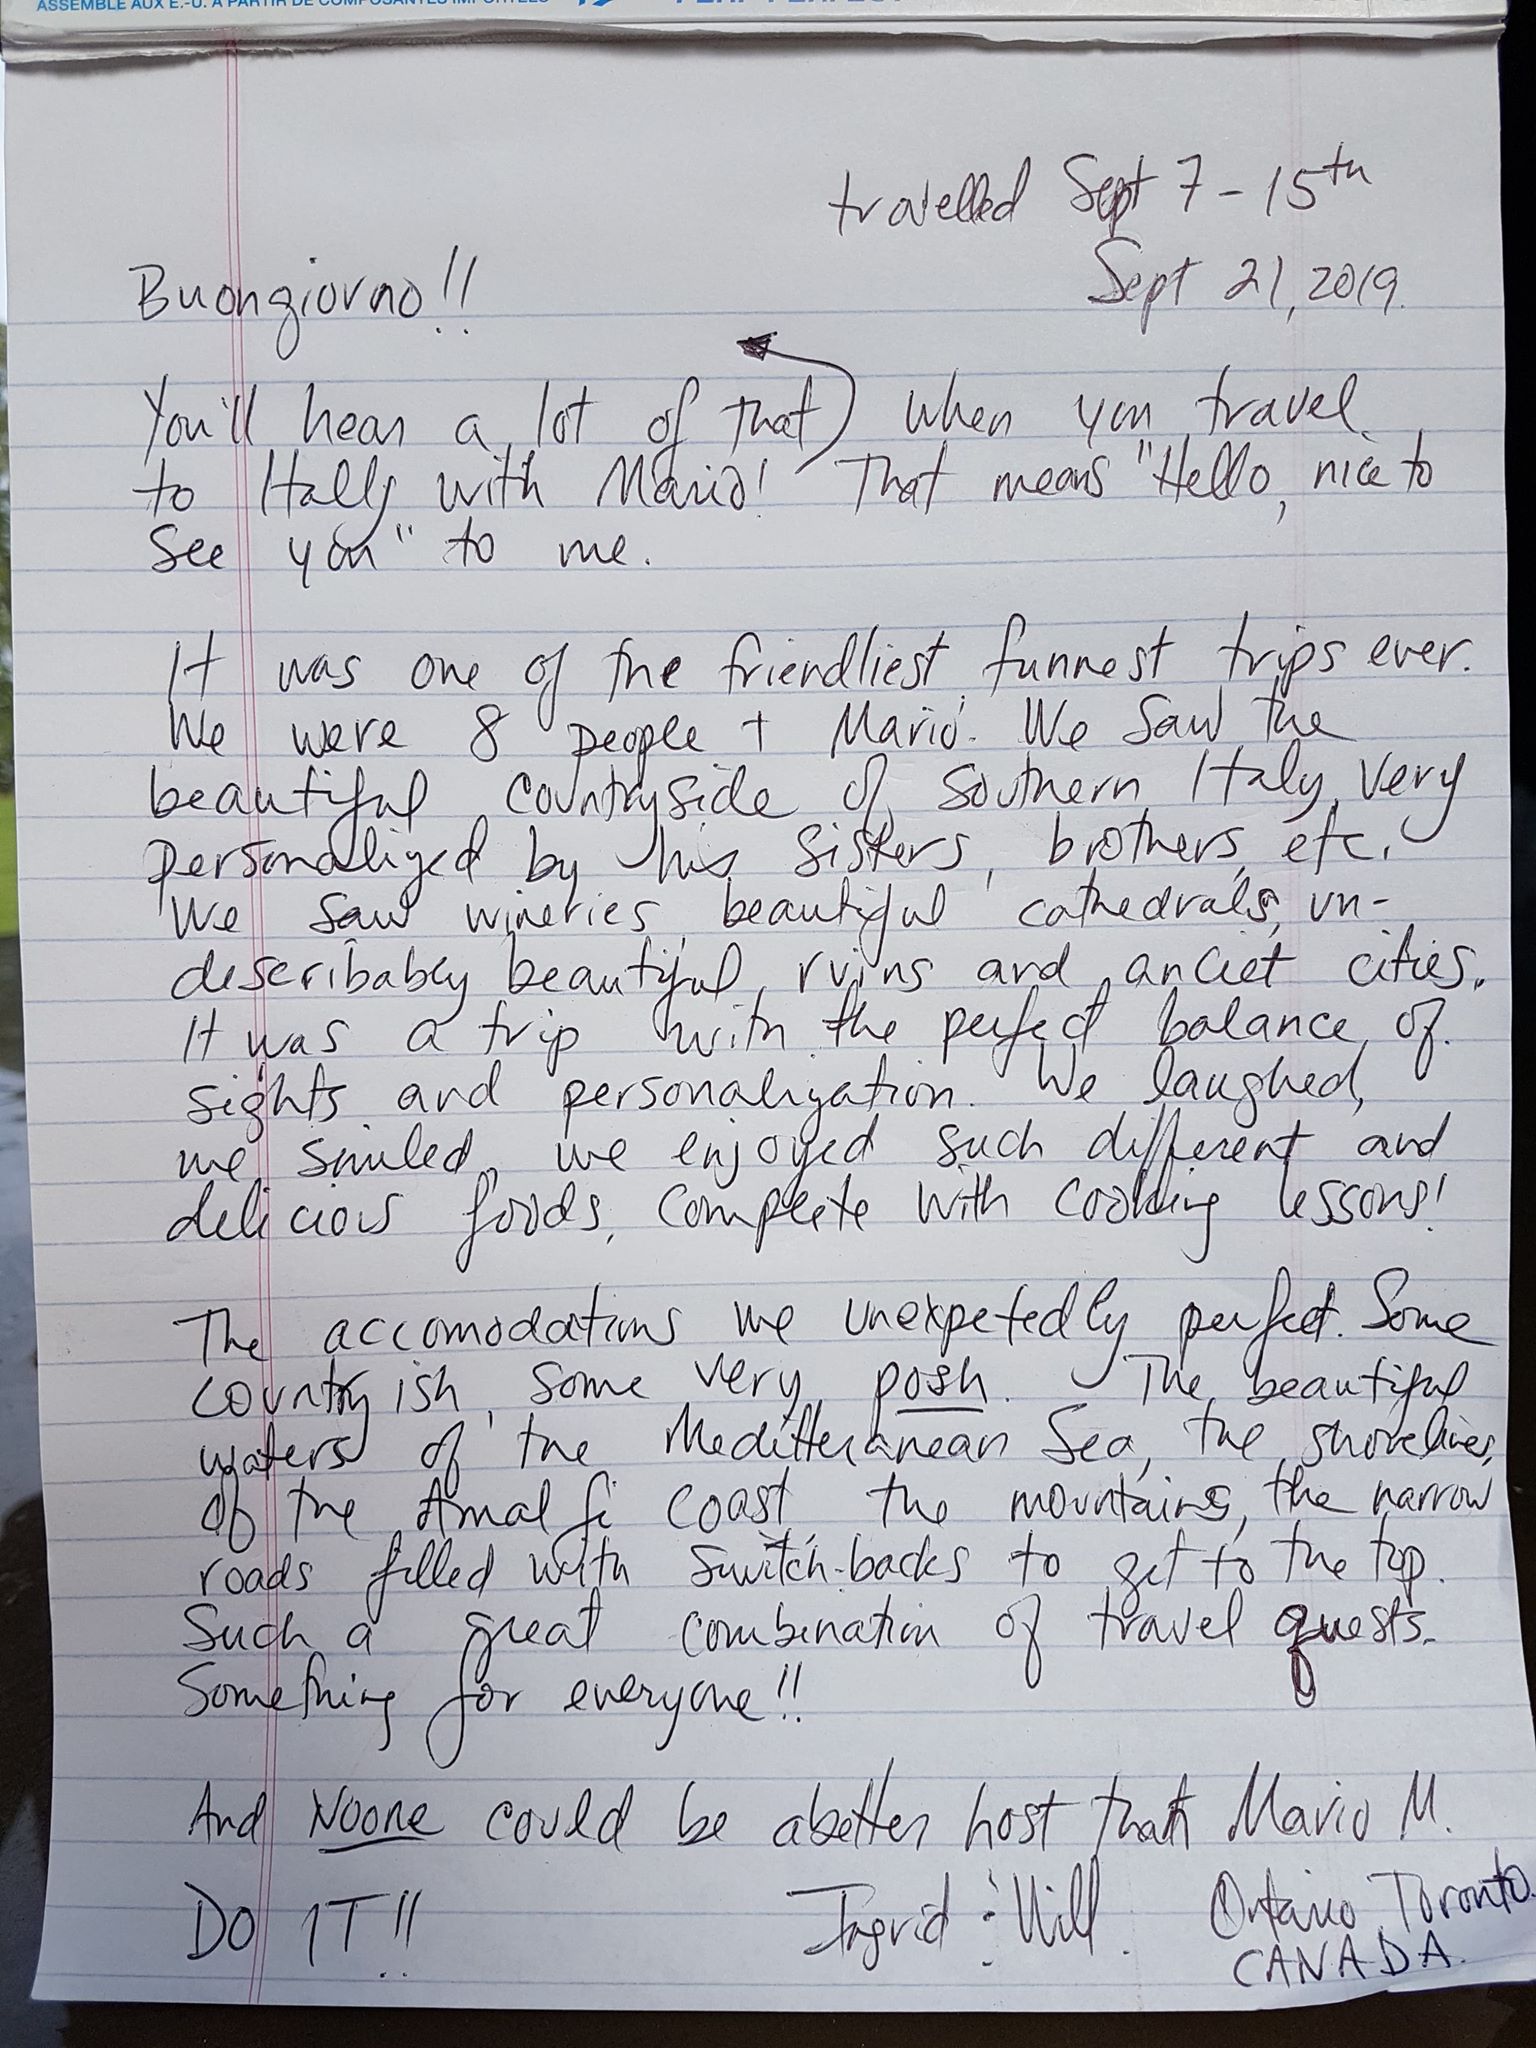 ASSEMBLÉ AUX É.-U. À PARTIR DE COMPOSANTES IMPORTÉES
travelled Sept 7 - 15th
Sept 21, 2019.
Buongiorno!!
You'll hear a lot of that when you travel
to Itally with Mario! That means "Hello, nice to
see you" to me.
It was one of the friendliest, funnest trips ever.
We were 8 people + Mario. We saw the
beautiful countryside of southern Italy, very
personalized by his sisters, brothers, etc.
We saw wineries, beautiful cathedrals, un-
describabley beautiful ruins and anciet cities.
It was a trip with the perfect balance of
sights and personalization. We laughed,
we smiled, we enjoyed such different and
delicious foods, compleete with cooking lessons!
The accomodations we unexpetedly perfect. Some
countryish, some very posh. The beautiful
waters of the Meditteranean Sea, the shorelines,
of the Amalfi coast the mountains, the narrow
roads filled with switch-backs to get to the top.
Such a great combination of travel quests.
Something for everyone!!
And NOONE could be a better host than Mario M.
DO IT!!
Ingrid : Will. Ontario, Toronto.
CANADA.